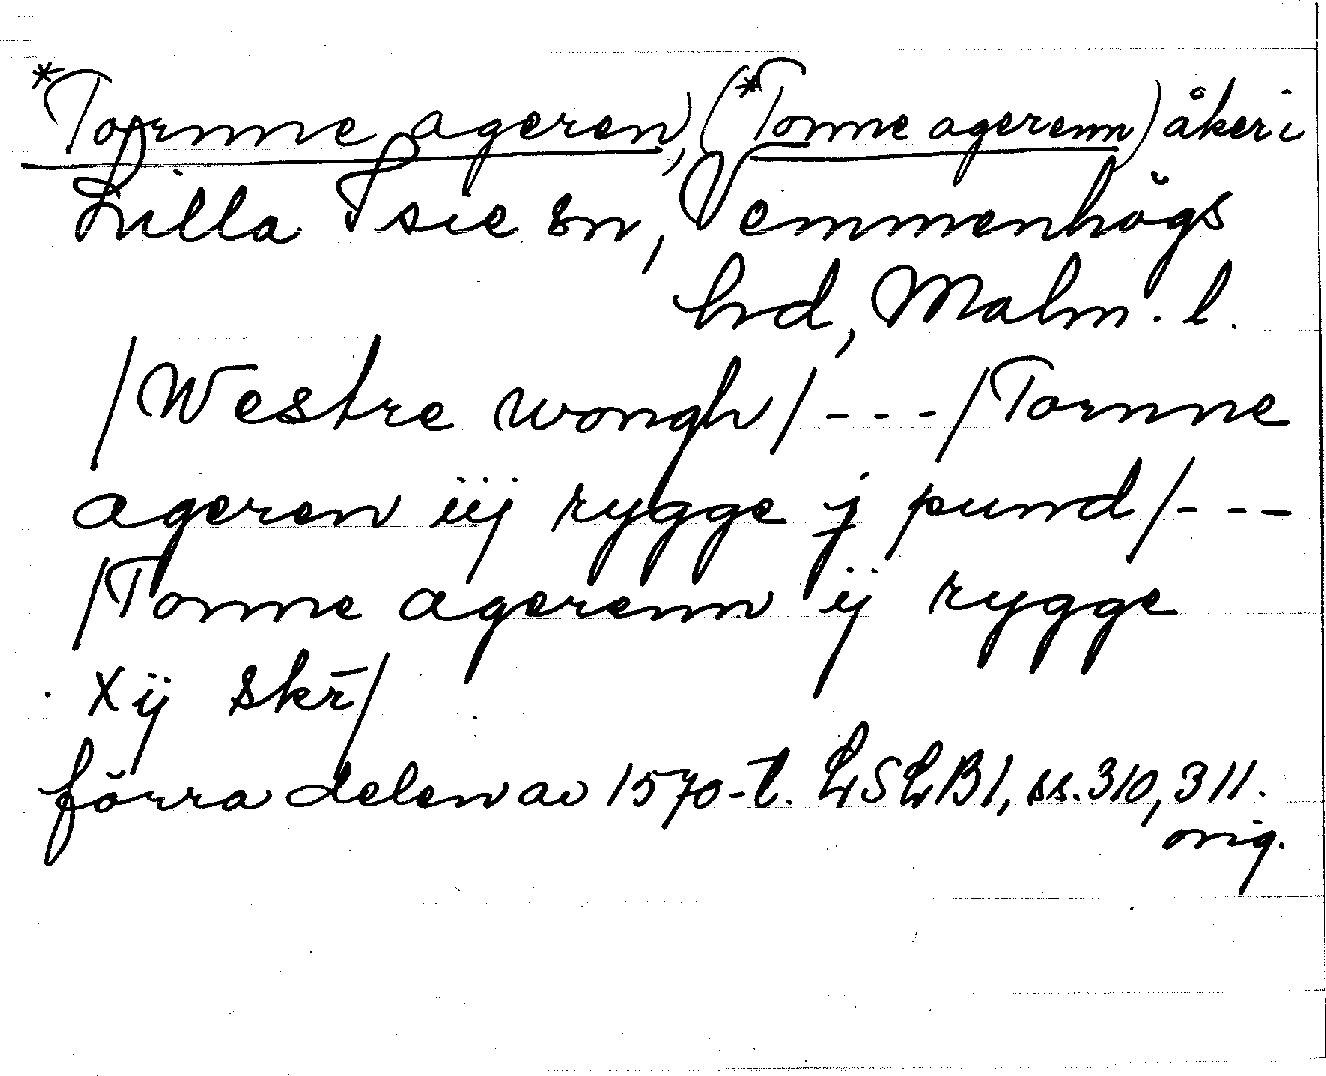 *Tornne ageren, (*Tonne agerenn) åker i
Lilla Isie sn, Vemmenhögs
hd, Malm. l.
/Westre wongh/ - - - /Tornne
ageren iij rygge j pund/ - - -
/Tonne agerenn ij rygge
xij skr̄/
förra delen av 1570-t. LSLB1, ss. 310, 311.
orig.